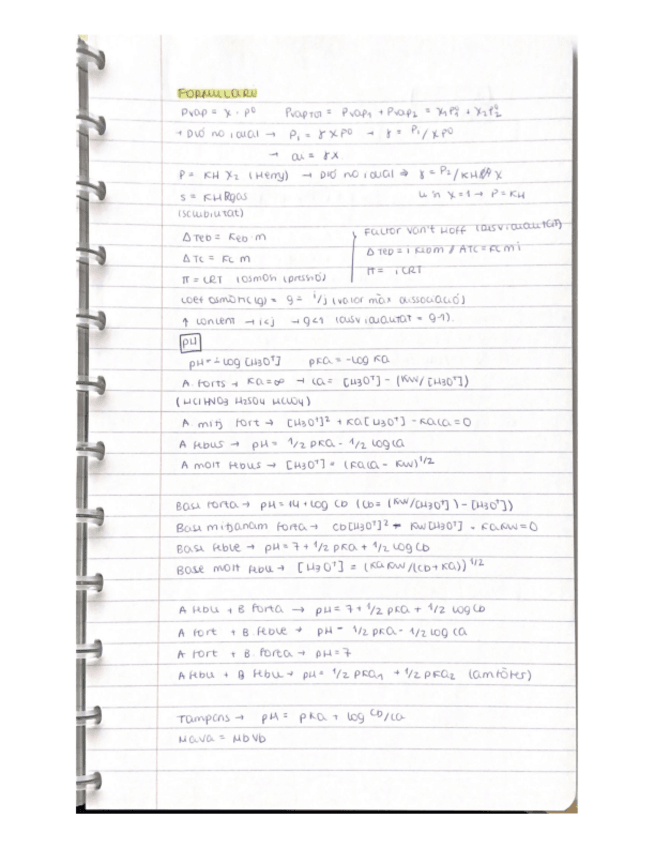 FORMULARI
Pvap = x · P⁰ PvapTOT = Pvap₁ + Pvap₂ = x₁P₁⁰ + x₂P₂⁰
+ Dió no ideal → P₁ = γxP⁰ → γ = P₁/xP⁰
→ ai = γx
P = KH X₂ (Henry) → Dió no ideal → γ = P₂/KH x
S = KH Pgas x=1 → P=KH
(solubilitat)
ΔTeb = Keb m Factor Van't Hoff (desviabilitat)
ΔTc = Kc m ΔTeb = i Keb m // ΔTc = Kc m i
π = CRT (osmòti (pressió) π = iCRT
Coef osmòtic(g) = g = i/j (valor màx dissociació)
↑ concent → i<j → g<1 (desviabilitat = g-1).
pH
pH = -log [H3O⁺] pKa = -log Ka
A. forts → Ka=∞ → Ca = [H3O⁺] - (Kw/[H3O⁺])
(HCl HNO3 H2SO4 HClO4)
A mitj fort → [H3O⁺]² + Ka[H3O⁺] - KaCa = 0
A febles → pH = 1/2 pKa - 1/2 log Ca
A molt febles → [H3O⁺] = (KaCa - Kw)^1/2
Base forta → pH = 14 + log Cb (Cb = (Kw/[H3O⁺]) - [H3O⁺])
Base mitjanam forta → Cb[H3O⁺]² - Kw[H3O⁺] - KaKw = 0
Base feble → pH = 7 + 1/2 pKa + 1/2 log Cb
Base molt feble → [H3O⁺] = (KaKw/(Cb+Ka))^1/2
A feble + B forta → pH = 7 + 1/2 pKa + 1/2 log Cb
A fort + B feble → pH = 1/2 pKa - 1/2 log Ca
A fort + B. forta → pH = 7
A feble + B feble → pH = 1/2 pKa₁ + 1/2 pKa₂ (amfòter)
Tampons → pH = pKa + log Cb/Ca
MaVa = MbVb